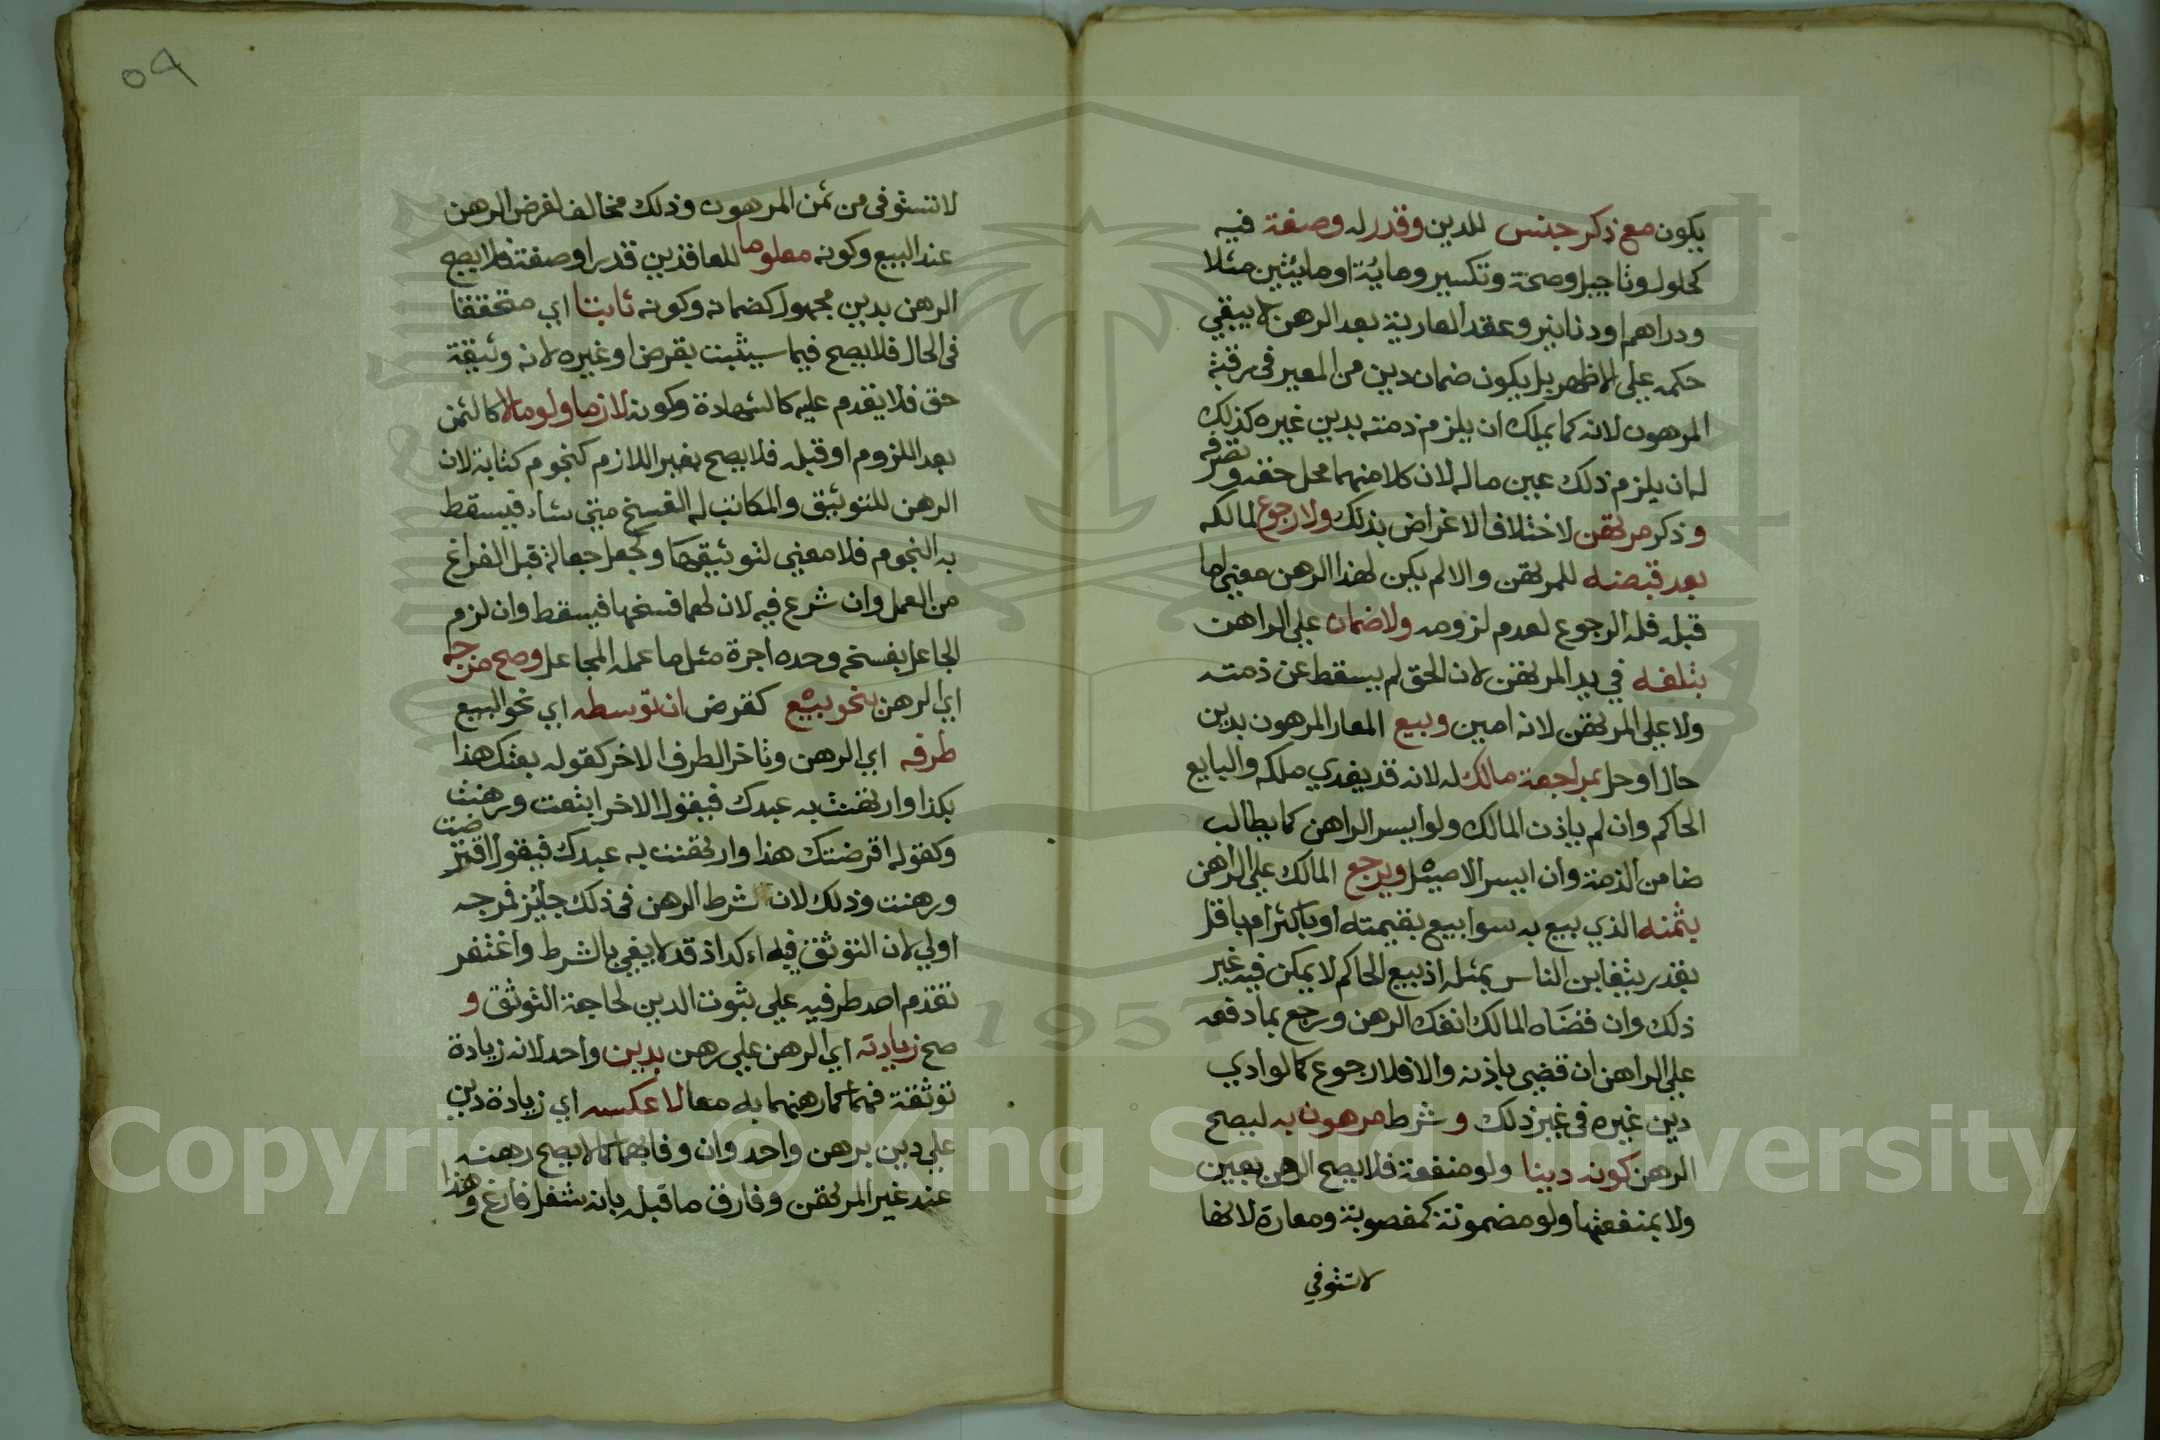 يكون مع ذكر جنس للدين وقدر له وصفة فيه
كحلول وتاجيل وصحة وتكسير وماية او مايتين مثلا
ودراهم او دنانير وعقد العارية بعد الرهن لا يبقي
حكمه علي الاظهر بل يكون ضمان دين من المعير في رقبة
المرهون لانه كما يملك ان يلزم ذمته بدين غيره كذلك
له ان يلزم ذلك عين ماله لان كلا منهما محل حقه وتصرفه
وذكر مرتهن لاختلاف الاغراض بذلك ولا رجوع لمالكه
بعد قبضه للمرتهن والا لم يكن لهذا الرهن معني اما
قبله فله الرجوع لعدم لزومه ولا ضمان علي الراهن
بتلفه في يد المرتهن لان الحق لم يسقط عن ذمته
ولا علي المرتهن لانه امين وبيع المعار المرهون بدين
حال او حل بمراجعة مالك له لانه قد يفدي ملكه والبايع
الحاكم وان لم ياذن المالك ولو ايسر الراهن كما يطالب
ضامن الذمة وان ايسر الاصيل ويرجع المالك علي الراهن
بثمنه الذي بيع به سوا بيع بقيمته او باكثر ام باقل
بقدر يتغابن الناس بمثله اذ بيع الحاكم لا يمكن فيه غير
ذلك وان قضاه المالك انفك الرهن ورجع بما دفعه
علي الراهن ان قضي باذنه والا فلا رجوع كما لو ادي
دين غيره في غير ذلك وشرط مرهون به ليصح
الرهن كونه دينا ولو منفعة فلا يصح الرهن بعين
ولا بمنفعتها ولو مضمونة كمغصوبة ومعارة لانها
لا تستوفي
٥٩
لا تستوفي من ثمن المرهون وذلك مخالف لغرض الرهن
عند البيع وكونه معلوما للعاقدين قدرا وصفة فلا يصح
الرهن بدين مجهول كضمانه وكونه ثابتا اي متحققا
في الحال فلا يصح فيما سيثبت بقرض او غيره لانه وثيقة
حق فلا يقدم عليه كالشهادة وكونه لازما ولو مالا كالثمن
بعد اللزوم او قبله فلا يصح بغير اللازم كنجوم كتابة لان
الرهن للتوثيق والمكاتب له الفسخ متي شاء فيسقط
به النجوم فلا معني لتوثيقها وكجعل جعالة قبل الفراغ
من العمل وان شرع فيه لان لهما فسخها فيسقط وان لزم
الجاعل بفسخه وحده اجرة مثل ما عمله المجاعل وصح مزجه
اي الرهن بنحو بيع كقرض ان توسطه اي نحو البيع
طرفه اي الرهن وتاخر الطرف الاخر كقوله بعتك هذا
بكذا وارتهنت به عبدك فيقول الاخر ابتعت ورهنت
وكقوله اقرضتك هذا وارتهنت به عبدك فيقول اقترضت
ورهنت وذلك لان شرط الرهن في ذلك جايز فمزجه
اولي لان التوثق فيه اكد اذ قد لا يفي بالشرط واغتفر
تقدم احد طرفيه علي ثبوت الدين لحاجة التوثق و
صح زيادته اي الرهن علي رهن بدين واحد لانه زيادة
توثقة فهما كما رهنهما به معا لا عكسه اي زيادة دين
علي دين برهن واحد وان وفا بهما كما لا يصح رهنه
عند غير المرتهن وفارق ما قبله بانه شغل فارغ وهذا
Copyright © King Saud University
1957